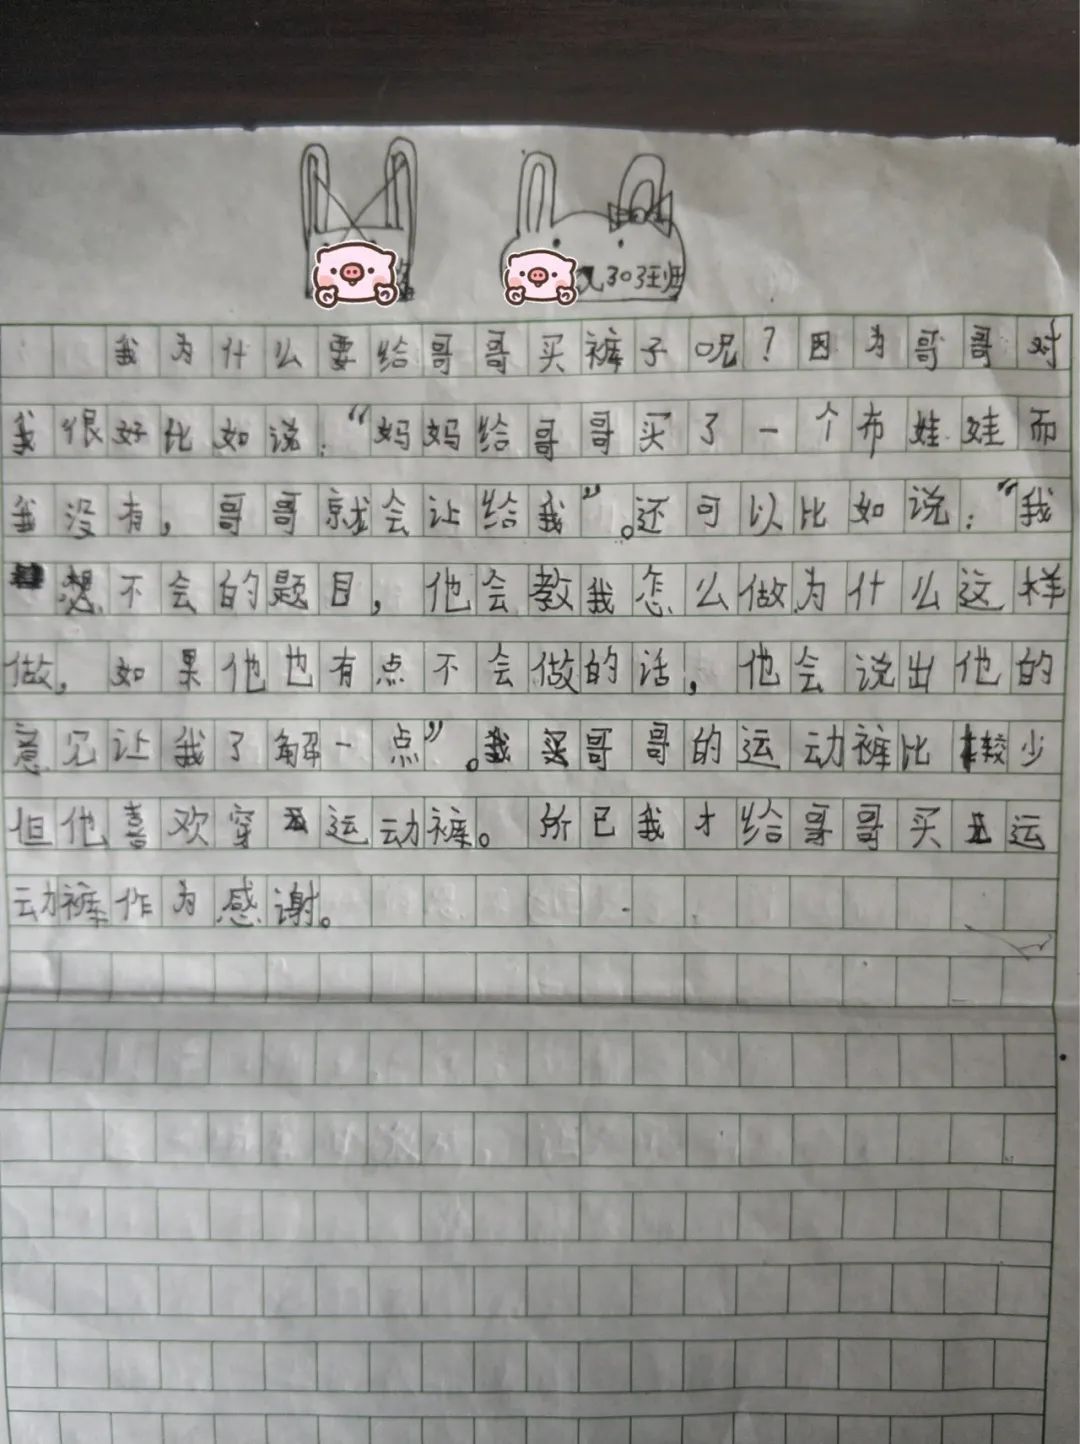 303班
我为什么要给哥哥买裤子呢？因为哥哥对
我很好比如说：“妈妈给哥哥买了一个布娃娃而
我没有，哥哥就会让给我”。还可以比如说：“我
想不会的题目，他会教我怎么做为什么这样
做，如果他也有点不会做的话，他会说出他的
意见让我了解一点”。我买哥哥的运动裤比较少
但他喜欢穿运动裤。所已我才给哥哥买运
动裤作为感谢。